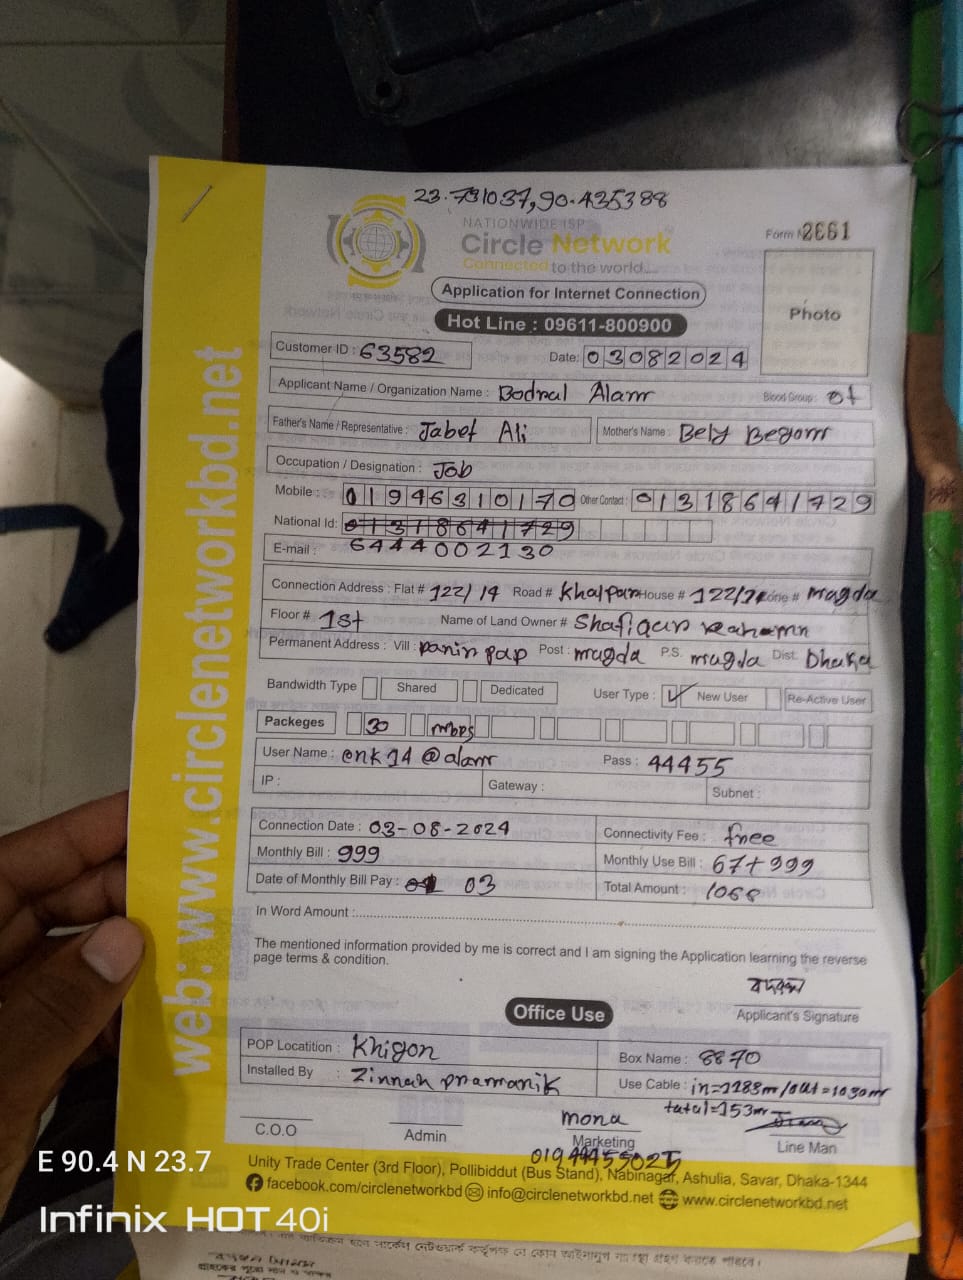 23.731037,90.435388
NATIONWIDE ISP
Circle Network
Connected to the world...
Form 2661
Application for Internet Connection
Hot Line : 09611-800900
Photo
web: www.circlenetworkbd.net
Customer ID : 63582 Date: 03082024
Applicant Name / Organization Name : Bodrul Alam Blood Group: o+
Father's Name / Representative : Jabef Ali Mother's Name : Bely Begom
Occupation / Designation : Job
Mobile : 01946310170 Other Contact : 01318641729
National Id: 01318641729
E-mail : 6444002130
Connection Address : Flat # 122/14 Road # Khalpar House # 122/ Zone # mugda
Floor # 1st Name of Land Owner # Shafiqur
Permanent Address : Vill : panir pap Post : mugda P.S. mugda Dist. Dhaka
Bandwidth Type Shared Dedicated User Type : ✓ New User Re-Active User
Packeges 30 mbps
User Name : enk14@alam Pass : 44455
IP : Gateway : Subnet :
Connection Date : 03-08-2024 Connectivity Fee : free
Monthly Bill : 999 Monthly Use Bill : 67+999
Date of Monthly Bill Pay : 03 Total Amount : 1066
In Word Amount :
The mentioned information provided by me is correct and I am signing the Application learning the reverse
page terms & condition.
বদরুল
Applicant's Signature
Office Use
POP Locatition : Khigon Box Name : 8870
Installed By : Zinnah pramanik Use Cable : in=1183m/out=1030m
total=153m
C.O.O Admin mona Marketing Line Man
01944455025
Unity Trade Center (3rd Floor), Pollibiddut (Bus Stand), Nabinagar, Ashulia, Savar, Dhaka-1344
facebook.com/circlenetworkbd info@circlenetworkbd.net www.circlenetworkbd.net
E 90.4 N 23.7
Infinix HOT 40i